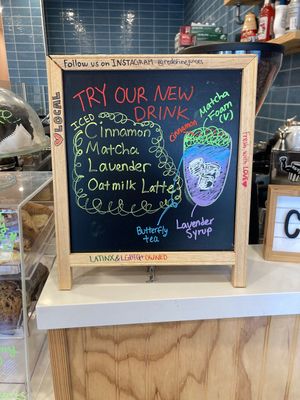 Follow us on INSTAGRAM @redefinejuices
♡ LOCAL
TRY OUR NEW
DRINK
ICED
Cinnamon
Matcha
Lavender
Oatmilk Latte
Cinnamon
Matcha
Foam
(V)
Fresh with LOVE ♡
Butterfly
tea
Lavender
Syrup
LATINX & LGBTQ+ OWNED
C